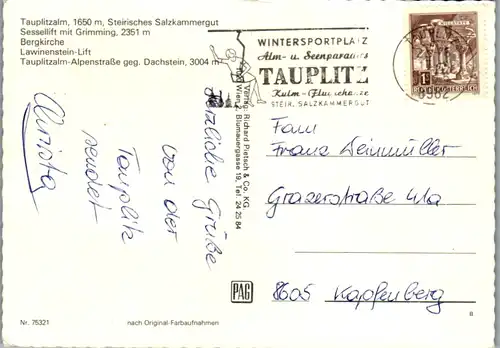 Tauplitzalm, 1650 m, Steirisches Salzkammergut
Sessellift mit Grimming, 2351 m
Bergkirche
Lawinenstein-Lift
Tauplitzalm-Alpenstraße geg. Dachstein, 3004 m
Herzliche Grüße
von der
Tauplitz
sendet
Christa
Verlag: Richard Pietsch & Co. KG
Wien 2, Blumauergasse 19, Tel. 24 25 84
WINTERSPORTPLATZ
Alm- u. Seenparadies
TAUPLITZ
Kulm-Flugschanze
STEIR. SALZKAMMERGUT
8982
MILLSTATT
1
REPUBLIK ÖSTERREICH
Fam
Franz Deinmüller
Grazerstraße 41a
8605 Kapfenberg
PAG
Nr. 75321
nach Original-Farbaufnahmen
B